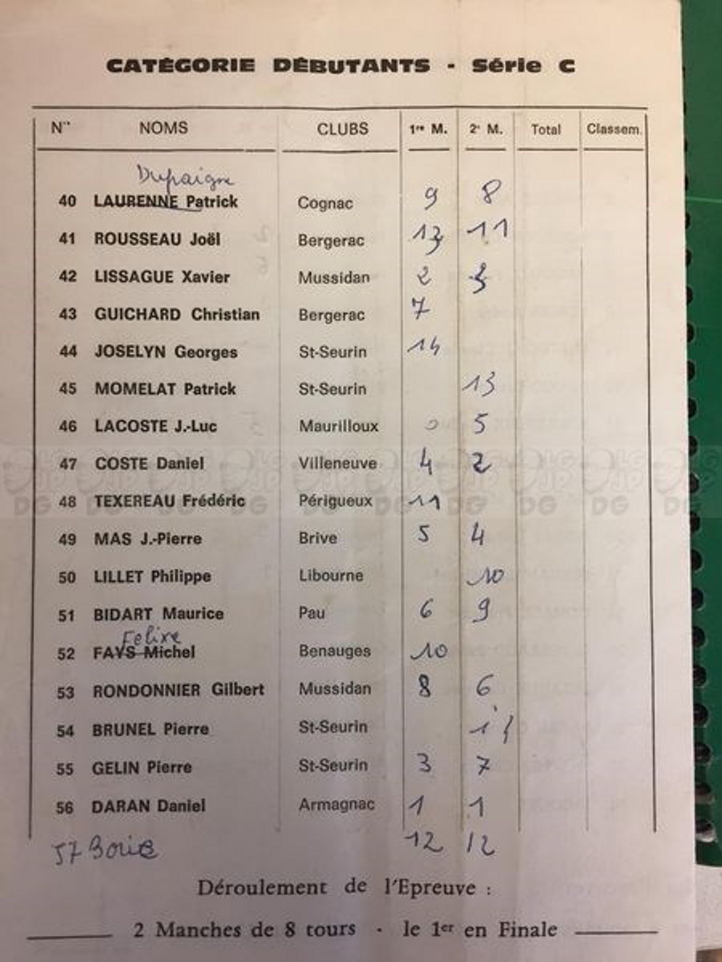 CATÉGORIE DÉBUTANTS - Série C
N° NOMS CLUBS 1re M. 2e M. Total Classem.
Dupaigne
40 LAURENNE Patrick Cognac 9 8
41 ROUSSEAU Joël Bergerac 13 11
42 LISSAGUE Xavier Mussidan 2 3
43 GUICHARD Christian Bergerac 7
44 JOSELYN Georges St-Seurin 14
45 MOMELAT Patrick St-Seurin 13
46 LACOSTE J.-Luc Maurilloux 0 5
47 COSTE Daniel Villeneuve 4 2
48 TEXEREAU Frédéric Périgueux 11
49 MAS J.-Pierre Brive 5 4
50 LILLET Philippe Libourne 10
51 BIDART Maurice Pau 6 9
Felixe
52 FAYS Michel Benauges 10
53 RONDONNIER Gilbert Mussidan 8 6
54 BRUNEL Pierre St-Seurin
55 GELIN Pierre St-Seurin 3 7
56 DARAN Daniel Armagnac 1 1
57 Borie 12 12
Déroulement de l'Epreuve :
2 Manches de 8 tours - le 1er en Finale